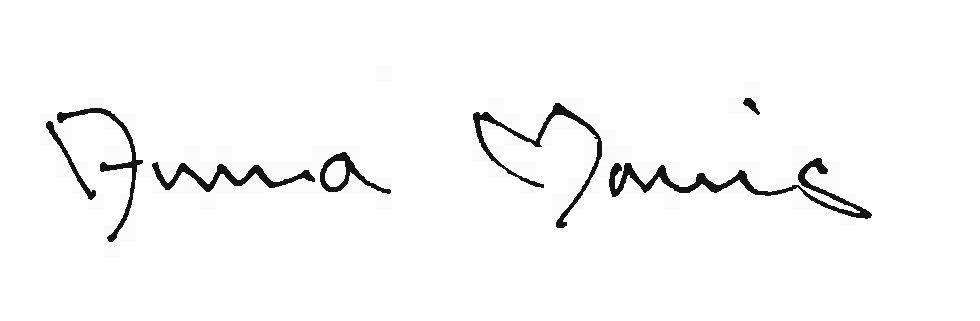 Anna Maris